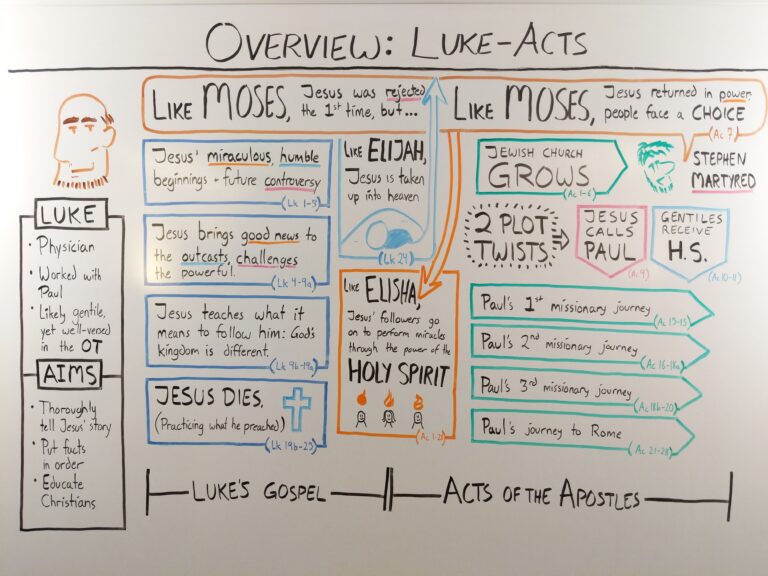 OVERVIEW: LUKE-ACTS
LIKE MOSES, Jesus was rejected
the 1st time, but...
LIKE MOSES, Jesus returned in power,
people face a CHOICE
(Ac 7)
LUKE
• Physician
• Worked with
Paul
• Likely gentile,
yet well-versed
in the OT
AIMS
• Thoroughly
tell Jesus' story
• Put facts
in order
• Educate
Christians
Jesus' miraculous, humble
beginnings + future controversy
(Lk 1-3)
Jesus brings good news to
the outcasts, challenges
the powerful.
(Lk 4-9a)
Jesus teaches what it
means to follow him: God's
kingdom is different.
(Lk 9b-19a)
JESUS DIES.
(Practicing what he preached)
(Lk 19b-23)
LIKE ELIJAH,
Jesus is taken
up into heaven
(Lk 24)
LIKE ELISHA,
Jesus' followers go
on to perform miracles
through the power of the
HOLY SPIRIT
(Ac 1-2)
JEWISH CHURCH
GROWS
(Ac 1-6)
STEPHEN
MARTYRED
2 PLOT
TWISTS
JESUS
CALLS
PAUL
(Ac 9)
GENTILES
RECEIVE
H.S.
(Ac 10-11)
Paul's 1st missionary journey
(Ac 13-15)
Paul's 2nd missionary journey
(Ac 16-18a)
Paul's 3rd missionary journey
(Ac 18b-20)
Paul's journey to Rome
(Ac 21-28)
LUKE'S GOSPEL
ACTS OF THE APOSTLES